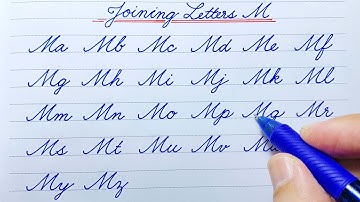 Joining Letters M
Ma Mb Mc Md Me Mf
Mg Mh Mi Mj Mk Ml
Mm Mn Mo Mp Mq Mr
Ms Mt Mu Mv
My Mz